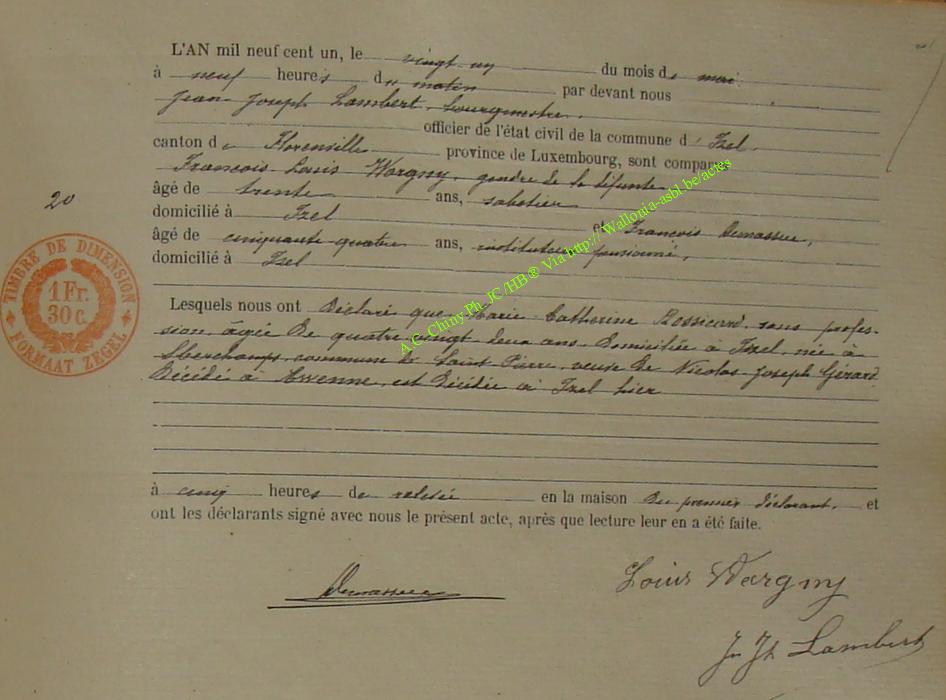 L'AN mil neuf cent un, le vingt un du mois de mai
à neuf heures du matin par devant nous
Jean Joseph Lambert, bourgmestre,
officier de l'état civil de la commune d'Izel,
canton de Florenville province de Luxembourg, sont comparus
François Louis Wargny, gendre de la défunte
âgé de trente ans, sabotier
domicilié à Izel et François Demasseu,
âgé de cinquante-quatre ans, instituteur pensionné,
domicilié à Izel
20
TIMBRE DE DIMENSION
1 Fr.
30 c.
FORMAAT ZEGEL
Lesquels nous ont déclaré que Marie Catherine sans profes-
sion, âgée de quatre vingt deux ans, domiciliée à Izel, née à
Sberchamps, commune de Saint Pierre, veuve de Nicolas Joseph Gérard
décédé à Assenne, est décédée à Izel hier
à cinq heures de relevée en la maison du premier déclarant, et
ont les déclarants signé avec nous le présent acte, après que lecture leur en a été faite.
Louis Wargny
Demasseu
J. Jh Lambert
A.C. Chiny Ph. JC /HB® Via http://Wallonia-asbl.be/actes